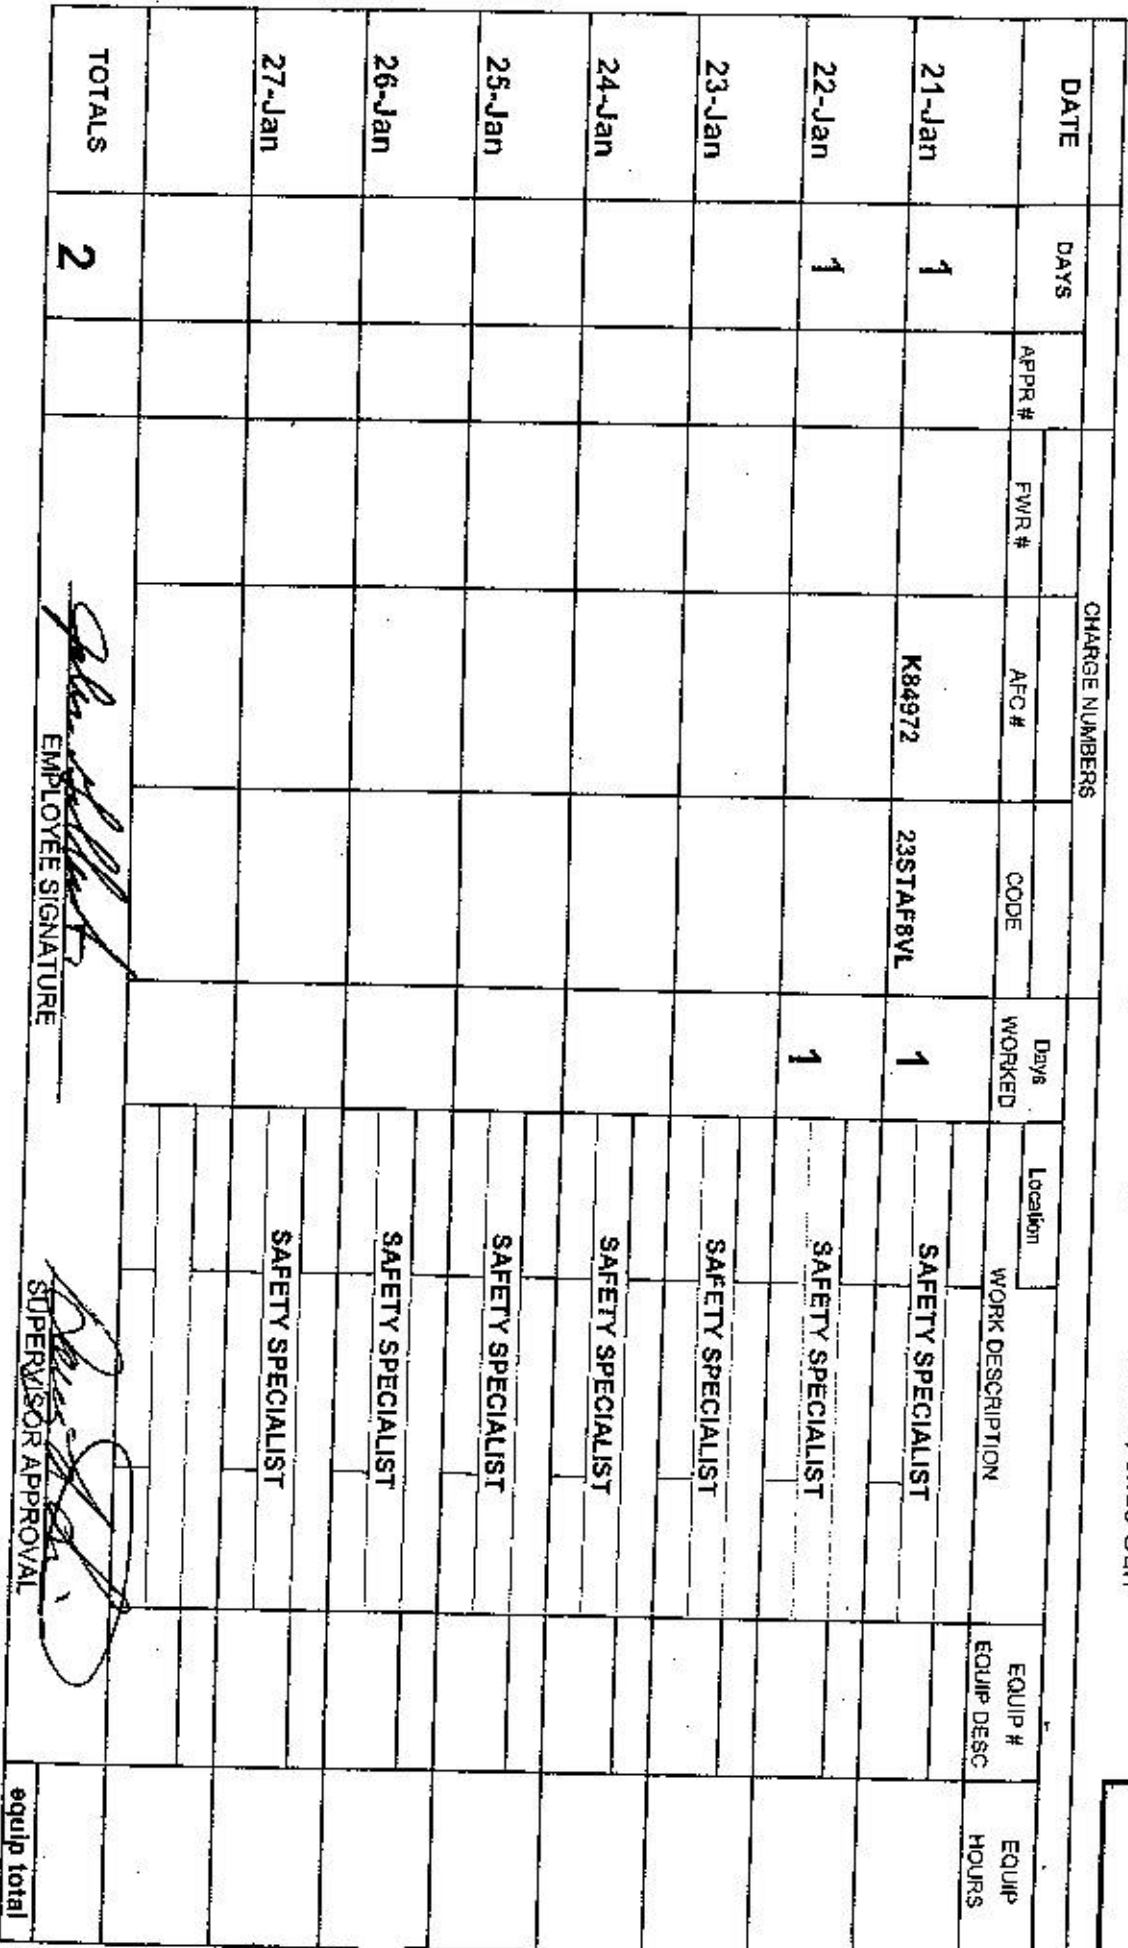 CHARGE NUMBERS
DATE DAYS APPR # FWR # AFC # CODE Days WORKED Location WORK DESCRIPTION EQUIP # EQUIP DESC EQUIP HOURS
21-Jan 1 K84972 23STAF8VL 1 SAFETY SPECIALIST
22-Jan 1 1 SAFETY SPECIALIST
23-Jan SAFETY SPECIALIST
24-Jan SAFETY SPECIALIST
25-Jan SAFETY SPECIALIST
26-Jan SAFETY SPECIALIST
27-Jan SAFETY SPECIALIST
TOTALS 2
EMPLOYEE SIGNATURE SUPERVISOR APPROVAL equip total